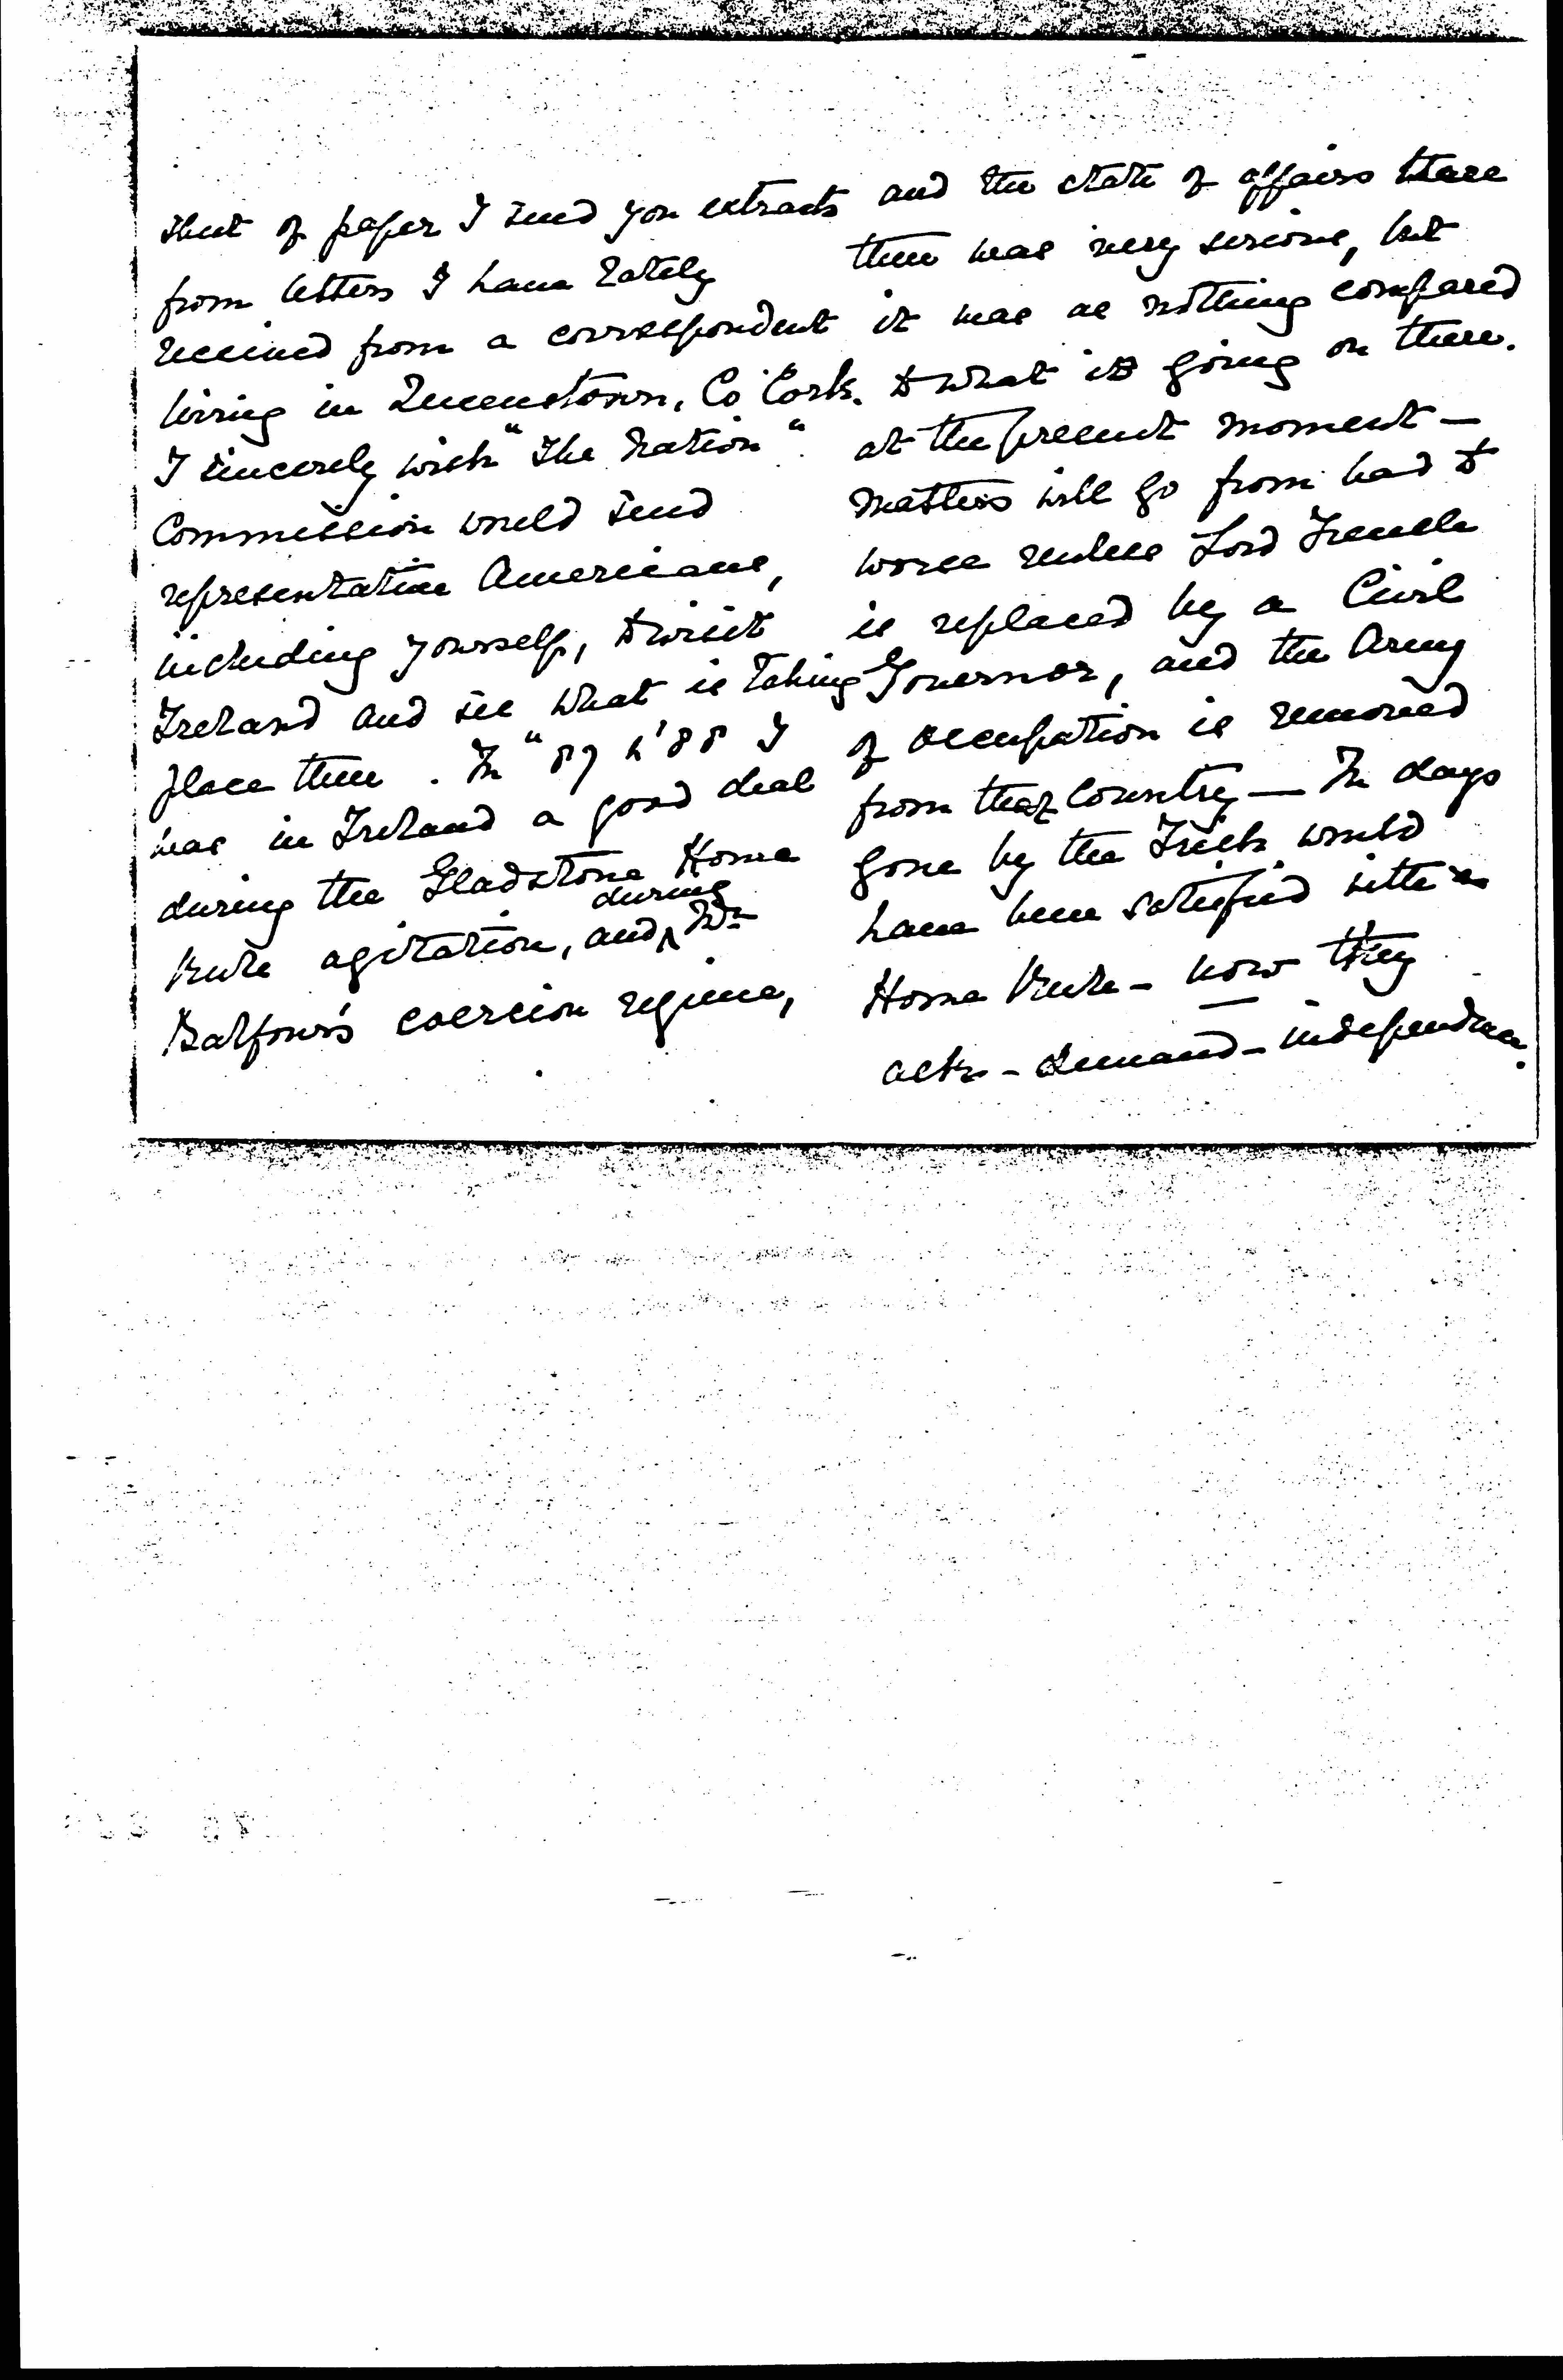 sheet of paper I send you extracts
from letters I have lately
received from a correspondent
living in Queenstown, Co Cork.
I sincerely wish "The Nation"
Commission would send
representative Americans,
including yourself, to visit
Ireland and see what is taking
place there. In "87 & '88 I
was in Ireland a good deal
during the Gladstone Home
Rule agitation, and during Mr
Balfour's coercion regime,
and the state of affairs
there was very serious, but
it was as nothing compared
to what is going on there.
at the present moment —
Matters will go from bad to
worse unless Lord French
is replaced by a Civil
Governor, and the Army
of Occupation is removed
from that Country — In days
gone by the Irish would
have been satisfied with
Home Rule - now they
ask - demand - independence.